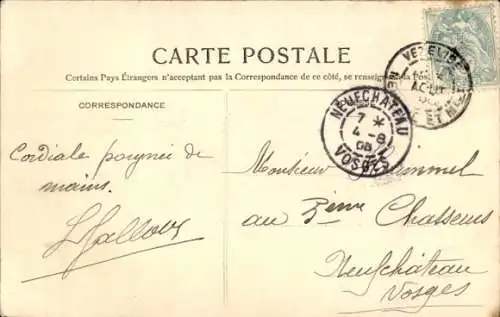 CARTE POSTALE
Certains Pays Étrangers n'acceptant pas la Correspondance de ce côté, se renseigner à la Poste
CORRESPONDANCE
Cordiale poignée de
mains.
Monsieur
au 3ème Chasseurs
Neufchâteau
Vosges
NEUFCHATEAU
7 *
4-8
VOSGES
VEZELISE
AOUT
ET M